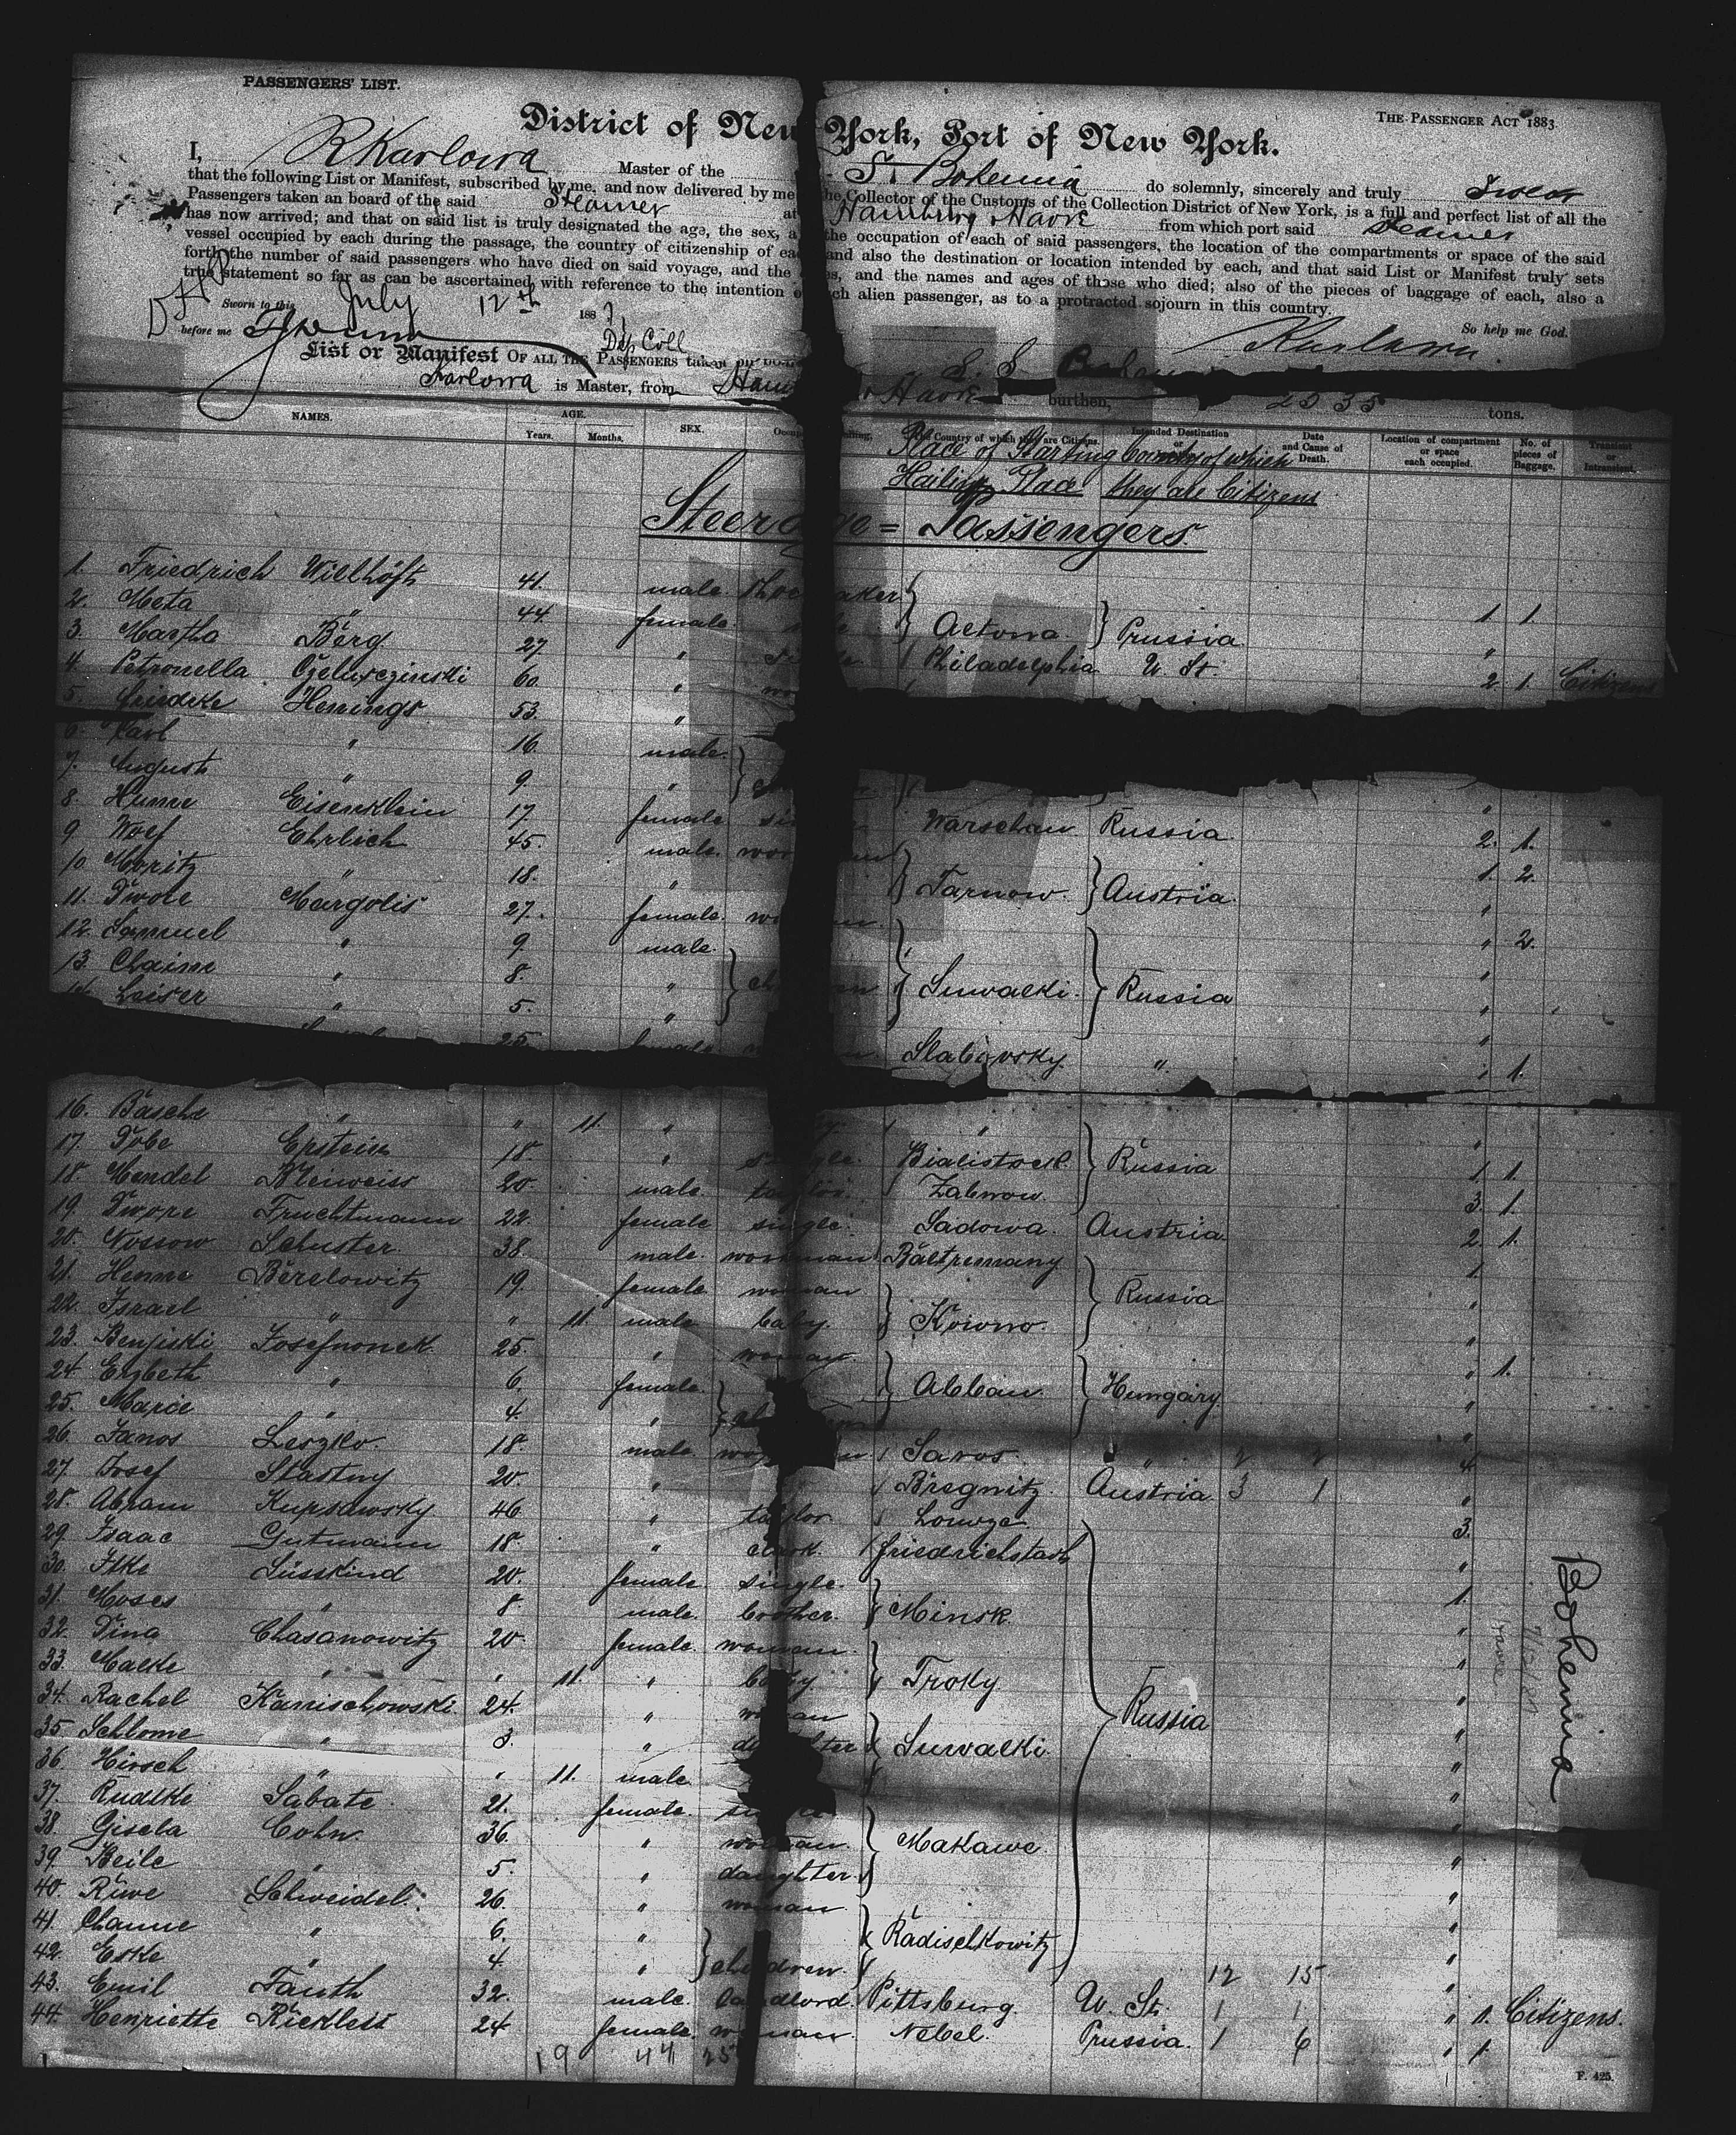 PASSENGERS' LIST.
THE PASSENGER ACT 1883
District of New York, Port of New York.
I, R Karlowa Master of the S. Bohemia do solemnly, sincerely and truly Swear
that the following List or Manifest, subscribed by me, and now delivered by me the Collector of the Customs of the Collection District of New York, is a full and perfect list of all the
Passengers taken on board of the said Steamer at Hamburg & Havre from which port said Steamer
has now arrived; and that on said list is truly designated the age, the sex, a the occupation of each of said passengers, the location of the compartments or space of the said
vessel occupied by each during the passage, the country of citizenship of ea and also the destination or location intended by each, and that said List or Manifest truly sets
forth the number of said passengers who have died on said voyage, and the s, and the names and ages of those who died; also of the pieces of baggage of each, also a
true statement so far as can be ascertained with reference to the intention o ch alien passenger, as to a protracted sojourn in this country.
Sworn to this July 12th 1887 So help me God.
before me Dep Coll Karlowa
List or Manifest OF ALL THE PASSENGERS taken on board S. S.
Karlowa is Master, from Ham & Havre burthen, 2535 tons.
NAMES. AGE. Years. Months. SEX. Occup The Country of which they are Citizens. Intended Destination or Date and Cause of Death. Location of compartment or space each occupied. No. of pieces of Baggage. Transient or Intransient.
Place of Starting Country of which
Hailing Place they are Citizens
Steerage = Passengers.
1. Friedrich Willhöft 41. male. shoemaker
2. Meta " 44. female. Altona. Prussia 1. 1.
3. Martha Berg 27 " "
4. Petronella Czelusczinski 60. " Philadelphia U. St. 2. 1. Citizens
5. Friedrke Henings 53. "
6. Karl " 16. male.
7. August " 9. "
8. Hume Eisenklein 17. female Warschau Russia 2. 1.
9 Wolf Ehrlich 45. male. Tarnow. Austria. 1. 2.
10. Moritz " 18. " "
11. Dwore Margolis 27. female. " 2.
12. Samuel " 9. male. Suwalki. Russia "
13. Chaime " 8. " "
14. Leiser " 5. " "
25. female Slabovsky " " 1.
16. Basche " " 11. " " "
17. Tobe Epstein 18. " single. Bialistock Russia 1. 1.
18. Mendel Bleiweiss 20. male. Zabnow 3. 1.
19. Dwore Fruchtmann 22. female single. Sadowa. Austria 2. 1.
20. Nossow Schuster 38. male. workman Baltremany 1.
21. Henne Berelowitz 19. female woman Kowno. Russia "
22. Israel " " 11. male baby. "
23. Benjiski Josefnonek. 25. " " 1.
24. Erzbeth " 6. female. Abbau. Hungary "
25. Marie " 4. " "
26. Janos Leszko. 18. male Saros. " 4.
27. Josef Stastny 20. " Bregnitz. Austria. 3 1 "
28. Abram Kupsdwsky. 46. " taylor Lomza. 3.
29. Isaac Gutmann 18. " clerk. Friedrichstadt "
30. Itke Süsskind 20. female. single. Minsk. 1.
31. Moses " 8. male. brother. "
32. Tina Chasanowitz 20. female. woman. Troky. "
33. Malke " " 11. " baby "
34. Rachel Kanischowski. 24. " woman Suwalki. Russia "
35 Schlome " 3. " daughter "
36. Hirsch " " 11. male "
37. Rudlke Sabate. 21. female. "
38. Gisela Cohn. 36. " woman. Makawe "
39. Beile " 5. " daughter. "
40. Riwe Schweidel. 26. " woman "
41. Channe " 6. " Radischkowitz "
42. Eske " 4. " children. 12 15 "
43. Emil Fauth 32. male. landlord. Pittsburg. U. St. 1 1 " 1. Citizens.
44. Henriette Rickless 24. female. woman. Nebel. Prussia. 1 6 " 1.
19 44 25
Bohemia
F. 425.